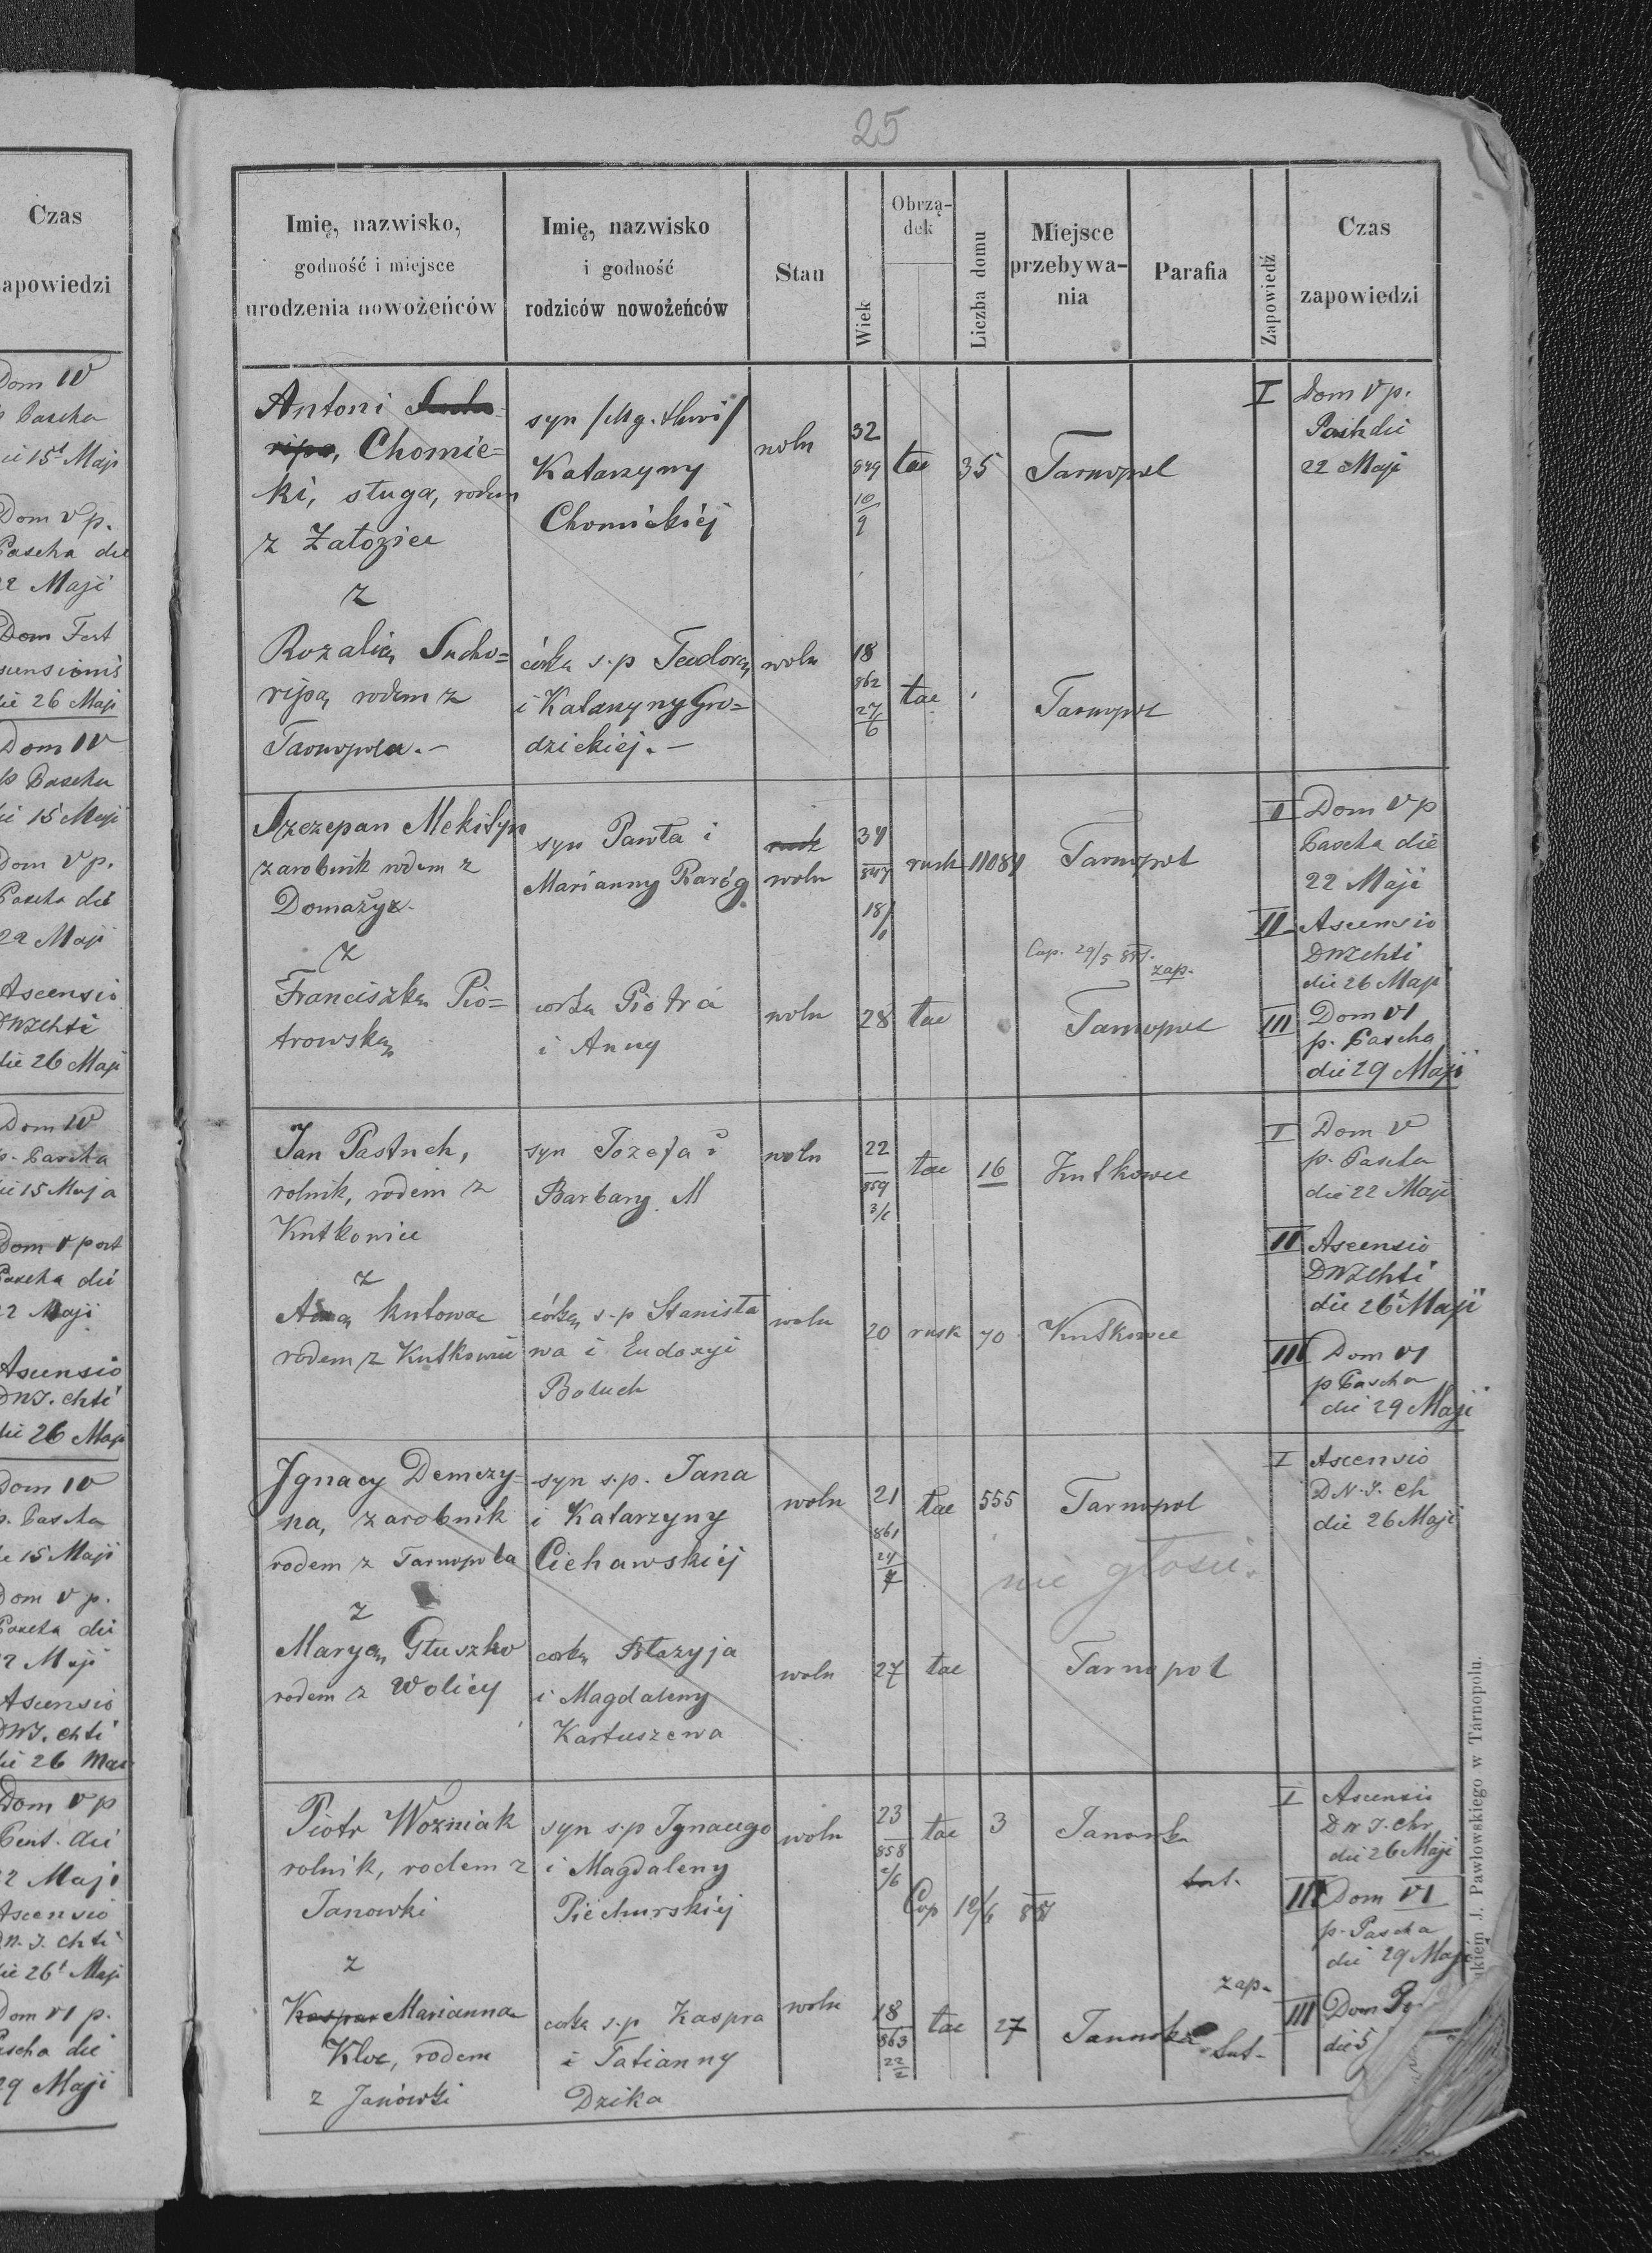 25
Czas
zapowiedzi
Dom IV
p Pascha
die 15t Maji
Dom V p.
Pascha die
22 Maji
Dom Fest
Ascensionis
die 26 Maji
Dom IV
p Pascha
die 15 Maji
Dom V p.
Pascha die
22 Maji
Ascensio
DNJChti
die 26 Maji
Dom IV
p. Pascha
die 15 Maja
Dom V post
Pascha die
22 Maji
Ascensio
DNJ. Chti
die 26 Maji
Dom IV
p. Pascha
die 15 Maji
Dom V p.
Pascha die
22 Maji
Ascensio
DNJ. Chti
die 26 Maii
Dom V p
Pent. die
22 Maji
Ascensio
DN. J. Chti
die 26t Maji
Dom VI p.
Pascha die
29 Maji
Imię, nazwisko,
godność i miejsce
urodzenia nowożeńców
Imię, nazwisko
i godność
rodziców nowożeńców
Stan
Wiek
Obrzą-
dek
Liczba domu
Miejsce
przebywa-
nia
Parafia
Zapowiedź
Czas
zapowiedzi
Antoni Sucho-
ripa, Chomic=
ki, sługa, rodem
z Załoziec
z
Rozalią Sucho=
ripą rodem z
Tarnopola.-
syn
Katarzyny
Chomickiéj
córka s.p Teodora
i Katarzyny Gro=
dzickiej.-
woln
32
849
10/9
łac 35 Tarnopol
woln
18
862
27/6
łac Tarnopol
I Dom V p.
Pasch die
22 Maji
Szczepan Mekiłyn
zarobnik rodem z
Domażyr
z
Franciszką Pio=
trowską
syn Pawła i
Maríanny Raróg
córka Piotra
i Anny
rusk
woln
34
847
18/1
rusk 11084 Tarnopol
Cop. 29/5 881.
zap.
woln 28 łac Tarnopol
I Dom V p
Pascha die
22 Maji
II Ascensio
DNJChti
die 26 Maji
III Dom VI
p. Pascha
die 29 Maji
Jan Pastuch,
rolnik, rodem z
Kutkowiec
z
Anną Kutowac
rodem z Kutkowiec
syn Józefa i
Barbary M
córka s.p Stanisła
wa i Eudoxyi
Bołuch
woln
22
859
3/1
łac 16 Kutkowce
woln 20 rusk 70 Kutkowce
I Dom V
p. Pascha
die 22 Maji
II Ascensio
DNJChti
die 26t Maji
III Dom VI
p Pascha
die 29 Maji
Ignacy Demczy=
na, zarobnik
rodem z Tarnopola
z
Maryą Głuszko
rodem z Wolicy
syn s.p. Jana
i Katarzyny
Cichawskiéj
córka Błazyja
i Magdaleny
Kartuszewa
woln
21
861
24/7
łac 555 Tarnopol
nie głosić.
woln 27 łac Tarnopol
I Ascensio
D N. J. Ch
die 26 Maji
Piotr Woźniak
rolnik, rodem z
Janowki
z
Kasper Marianna
Kloc, rodem
z Janówki
syn s.p Ignacego
i Magdaleny
Piechurskiéj
córka s.p Kaspra
i Tatianny
Dzika
woln
23
858
2/6
łac 3 Janowka
Cop 12/6 881
woln
18
863
22/2
łac 27 Janowka
zap.
I Ascensio
D N J. Chr
die 26 Maji
II Dom VI
p. Pascha
die 29 Maji
III Dom
die 5
J. Pawłowskiego w Tarnopolu.